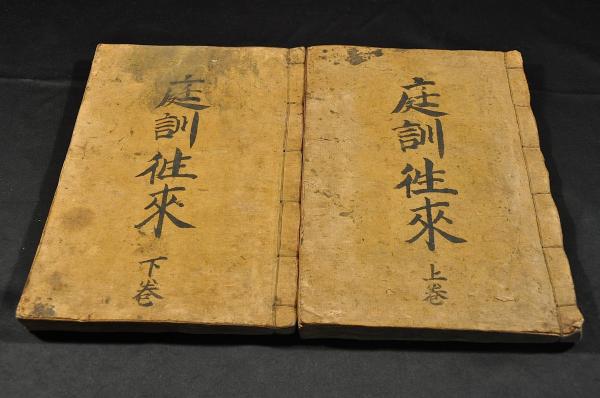 庭訓徃來
上巻
庭訓徃來
下巻